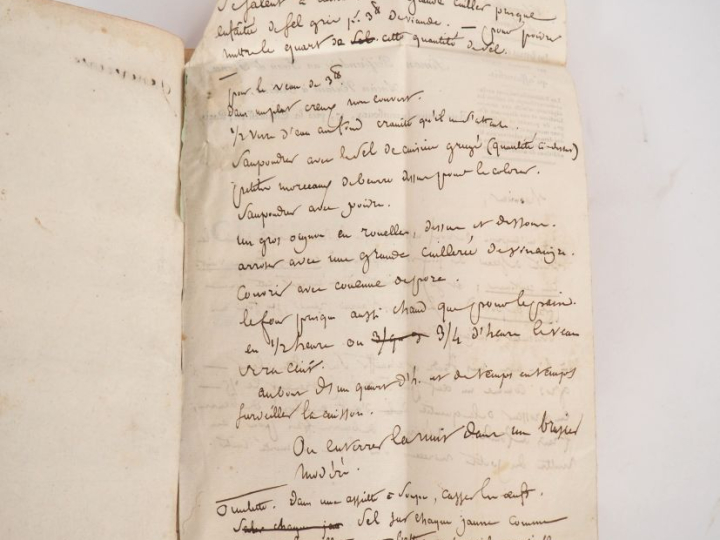 cuiller presque
enfaîtée de sel gris pr. 3lt de viande. — pour poivre
mettre le quart de sel cette quantité de sel.
pour le veau de 3lt.
dans un plat creux non couvert.
1/2 verre d'eau au fond crainte qu'il ne s'attache.
Saupoudrer avec le sel de cuisine grugé (quantité ci-dessus)
petits morceaux de beurre dessus pour le colorer.
Saupoudrer avec poivre.
un gros oignon en rouelles, dessus et dessous.
arroser avec une grande cuillerée de vinaigre.
Couvrir avec couenne de porc.
le four presque aussi chaud que pour le pain.
en 1/2 heure ou 3/4 d'heure le veau
sera cuit.
au bout d'un quart d'h. et de temps en temps
surveiller la cuisson.
Ou enterrer la nuit dans un brasier
modéré.
Omelette. Dans une assiette à soupe, casser les œufs.
Sel sur chaque jaune comme